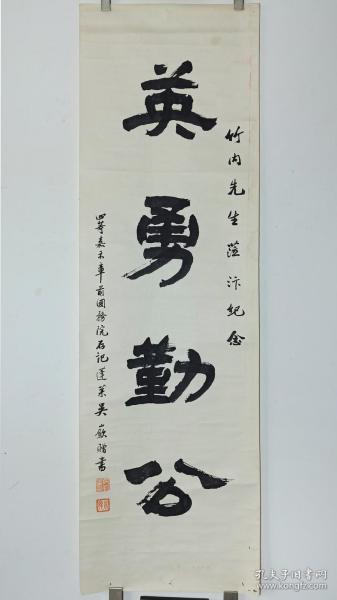 竹内先生蒞汴紀念
英勇勤公
四等嘉禾章前國務院存記蓬萊吳嶔贈書
孔夫子旧书网